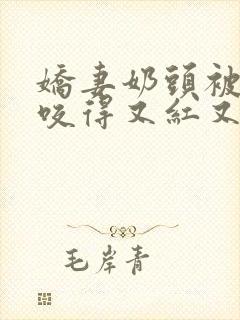 嬌妻奶頭被
咬得又紅又
毛岸青